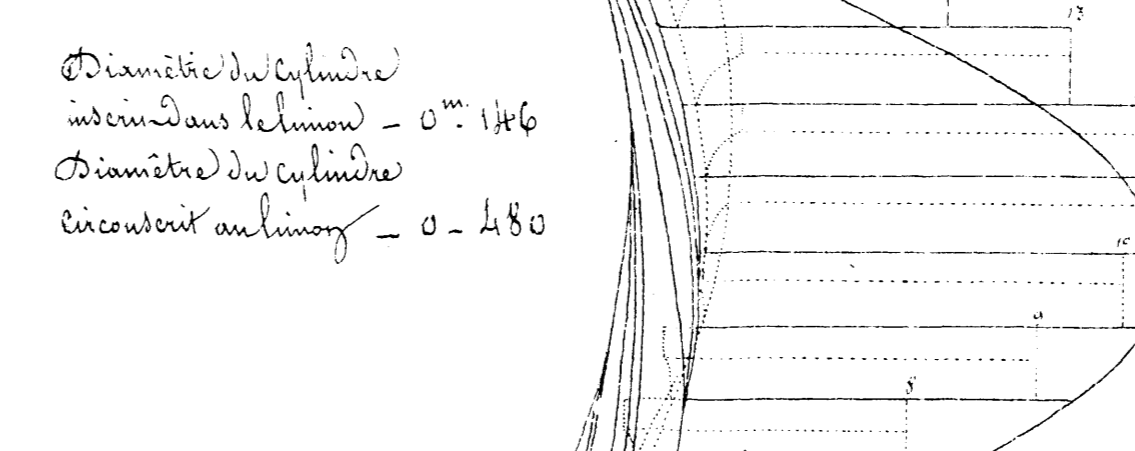 Diamètre du cylindre
inscrit dans le limon — 0m. 146
Diamêtre du cylindre
circonscrit au limon — 0 - 480
13
10
9
8